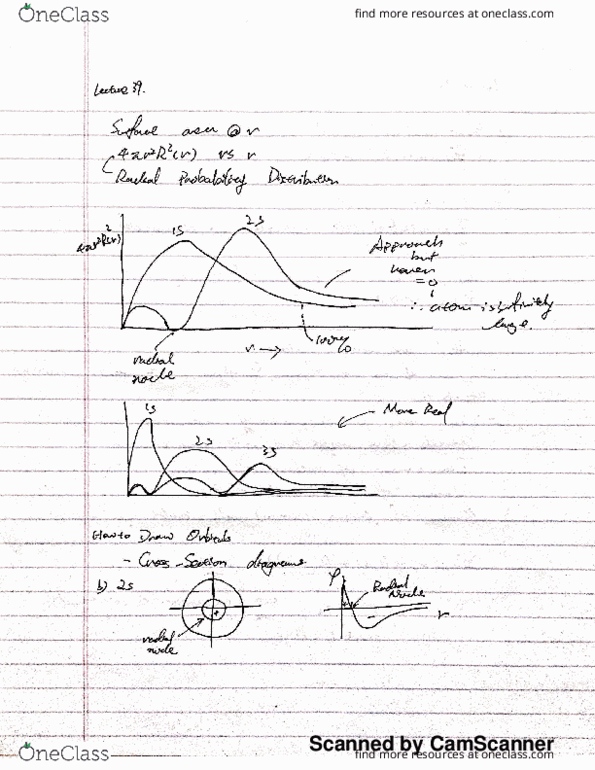 OneClass
find more resources at oneclass.com
Lecture 39.
Surface area @ r
4πr²R²(r) vs r
Radial Probability Distribution
4πr²R²(r)
1S
2S
Approach
but
never
= 0
∴ atom is infinitely
large.
radial
node
r →
1S
2S
3S
More Real
How to Draw Orbitals
- Cross-Section diagrams
b) 2S
+
radial
node
φ
Radial
Node
-
r
Scanned by CamScanner
OneClass
find more resources at oneclass.com